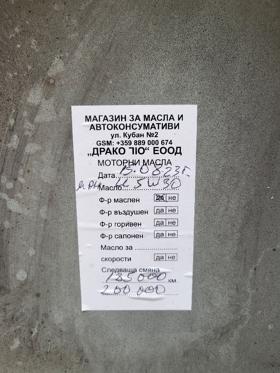 МАГАЗИН ЗА МАСЛА И
АВТОКОНСУМАТИВИ
ул. Кубан №2
GSM: +359 889 000 674
„ДРАКО ПО“ ЕООД
МОТОРНИ МАСЛА
Дата 15.08.23г.
Масло 5W30
Ф-р маслен да не
Ф-р въздушен да не
Ф-р горивен да не
Ф-р салонен да не
Масло за
скорости да не
Следваща смяна
185000 км
200 000